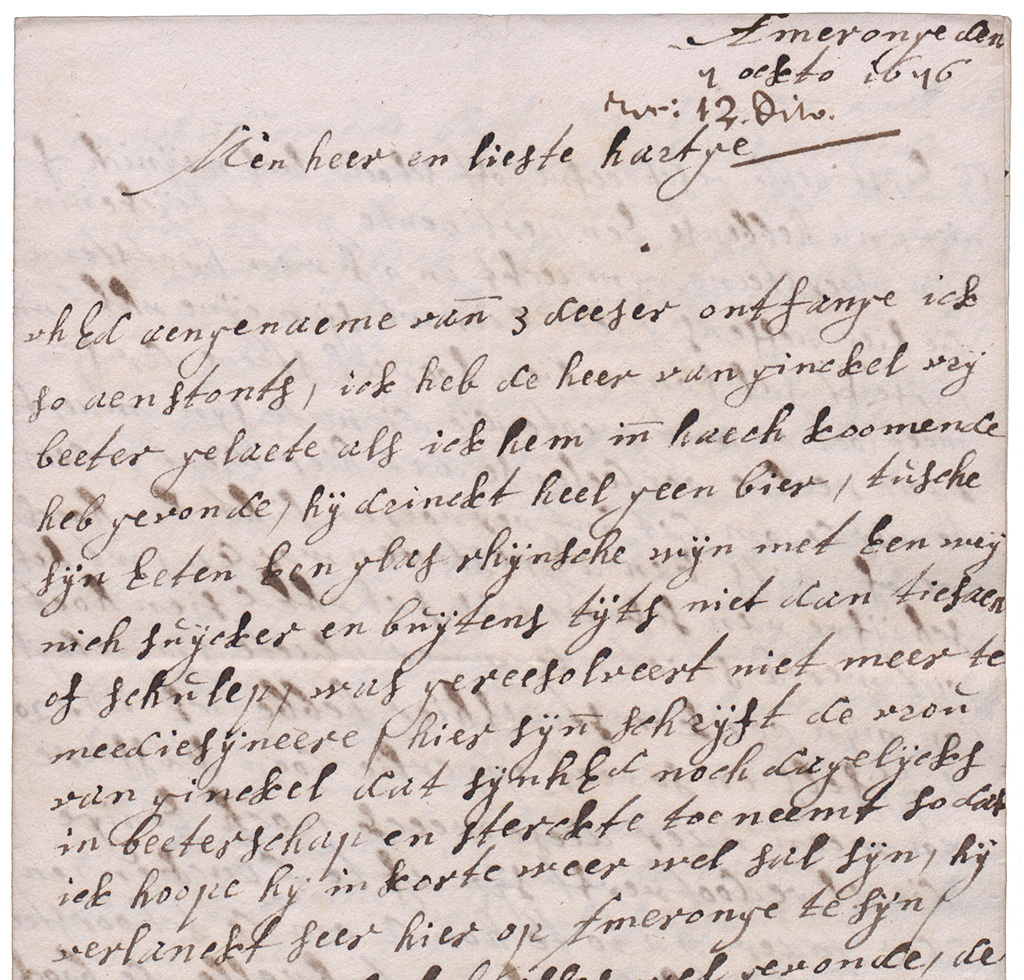 Ameronge den
7 ockto 1676
rec: 12. dito.
Mĕn heer en lieste hartge
uhEd aengenaeme van̄ 3 deeser ontfange ick
so aenstonts, ick heb de heer van ginckel vry
beeter gelaete als ick hem in̄ haech koomende
heb gevonde, hÿ drinckt heel geen bier, tŭsche
sÿn Eeten Een glas rhÿnsche wÿn met Een wey
nich sŭÿcker en bŭÿtens tÿts niet dan tiesaen
of schŭlep, was gereesolveert niet meer te
meediesÿneere, hier sÿn̄ schrÿft de vroŭ
van ginckel dat sÿnhEd noch dagelÿcks
in beeterschap en sterckte toeneemt so dat
ick hoope hÿ in korte weer wel sal sÿn, hÿ
verlanckt seer hier op Ameronge te sÿn,
wel gevonde, de